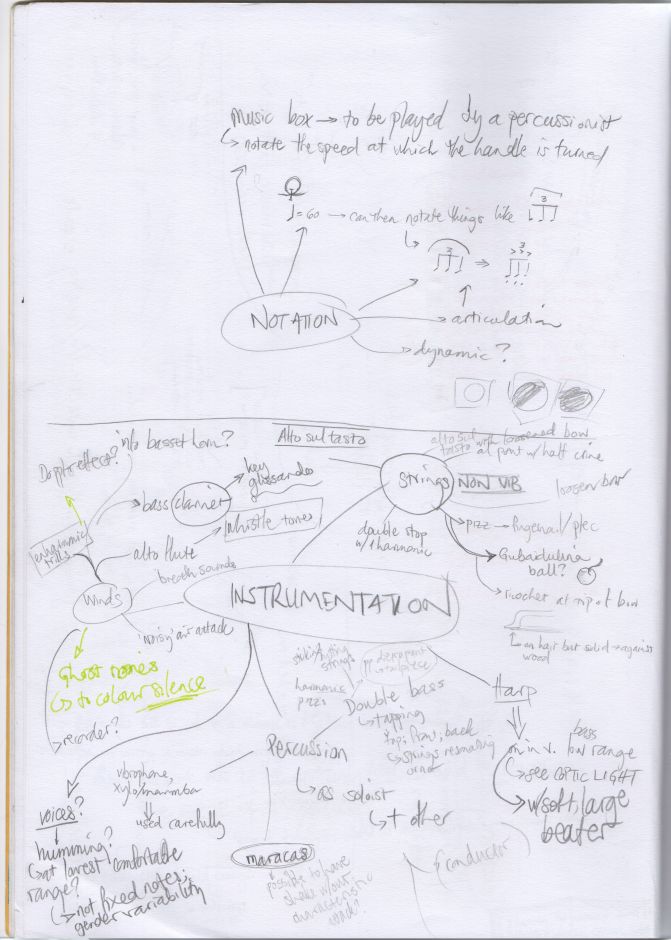 music box → to be played by a percussionist
↳ notate the speed at which the handle is turned
♩=60 → can then notate things like
3
3
⇒
3
>>>
NOTATION
→ articulation
→ dynamic?
info basset horn?
Doppler effect?
Alto sul tasto
alto sul tasto
with loosened bow
al pont w/ half crine
strings
NON VIB
loosen bow
key
glissandos
bass clarinet
whistle tones
double stop
w/ 1 harmonic
→ pizz → fingernail/plec
Gubaidulina
ball?
enharmonic
trills
alto flute
breath sounds
→ ricochet at tip of bow
Winds
INSTRUMENTATION
'noisy' air attack
on hair but solid → against
wood
Ghost noises
↳ to colour silence
strings
harmonic
pizz
Double bass
↳ tapping
top, front, back
↳ strings resonating
or not
Harp
bass
low range
↳ see OPTIC LIGHT
↳ w/ soft, large
beater
→ recorder?
Percussion
↳ as soloist
↳ + other
vibraphone,
xylo/marimba
used carefully
voices?
humming?
↳ at lowest comfortable
range?
↳ not fixed notes;
gender variability
maracas
possible to have
shake w/out
characteristic
sound?
(conductor)